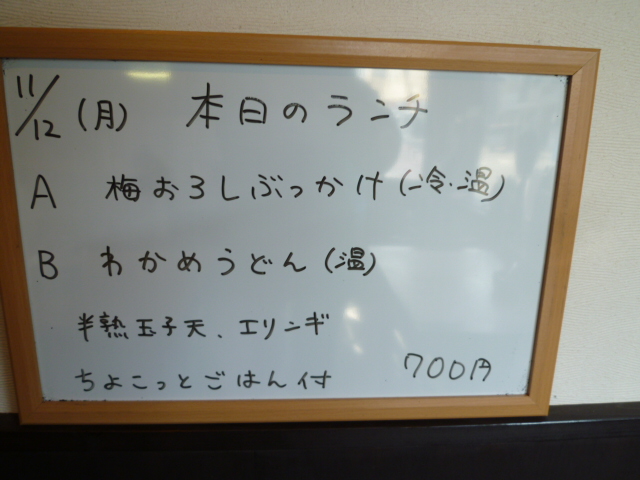 11/12 (月) 本日のランチ
A 梅おろしぶっかけ(冷・温)
B わかめうどん(温)
半熟玉子天、エリンギ
ちょこっとごはん付 700円